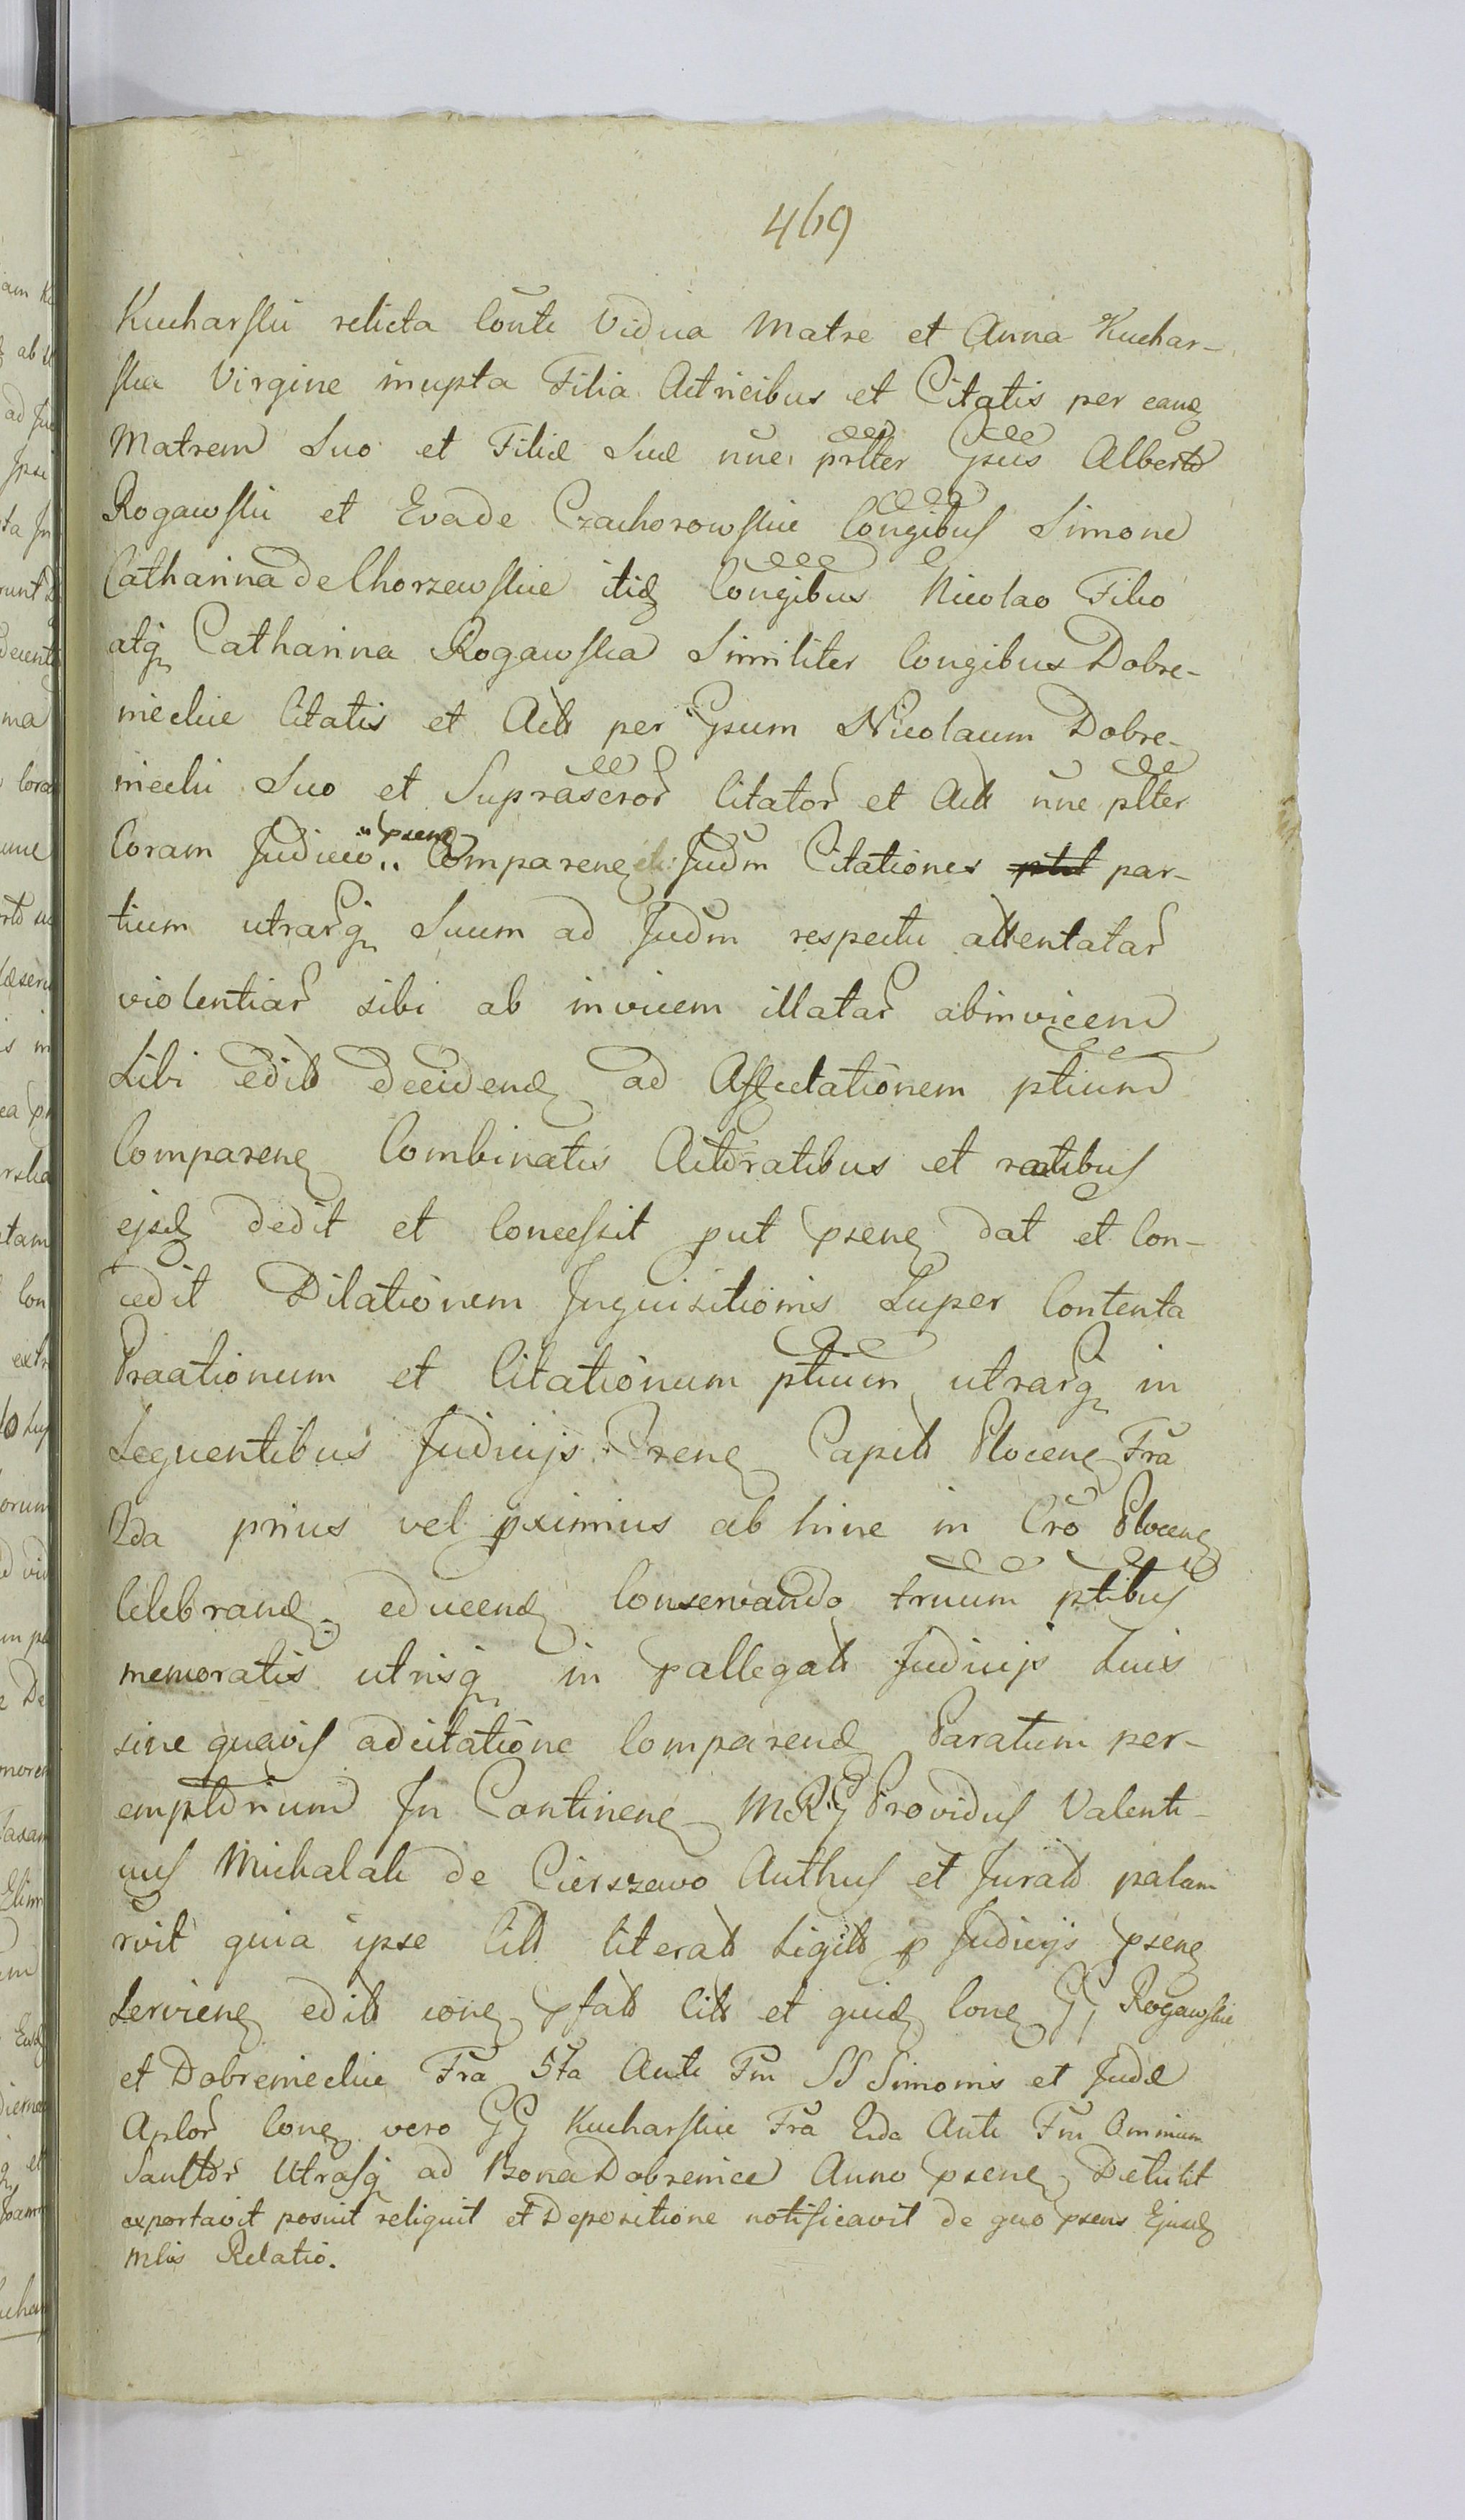 469
Kucharskii relicta Conte Vidua Matre et Anna Kuchar-
ska Virgine inupta Filia Actricibus et Citatis per eand
Matrem Suo et Filiæ Suæ nñe prltter Gsus Alberto
Rogawskii et Eva de Czachorowskie Congibus Simone
Catharina de Chorzewskie itid Congibus Nicolao Filio
atq Catharina Rogawska Similiter Congibus Dobre-
mieckie Citatis et Actt per Gsum Nicolaum Dobre-
miecki Suo et Suprascror Citator et Actt nñe pltter
Coram Judicio psenq Comparenq Judm Citationes par-
tium utrarq Suum ad Judm respectu attentatar
violentiar sibi ab invicem illatar abinvicem
Sibi editt Decidend ad Affectationem ptium
Comparenq Combinatis Actoratibus et ratibus
ejsd dedit et Concessit put psenq dat et Con-
cedit Dilationem Inquisitionis Super Contenta
Praationum et Citationum ptium utrarq in
Sequentibus Judicijs Trenq Capitt Plocenq Fra
2da prius vel pximius ab hinc in Cro Plocenq
Celebrand educend Conservando trnum ptibus
memoratis utrisq in pallegatt Judicijs Suis
sine quavis adcitatione Comparend Paratum per-
emptorium In Continenq MRG Providus Valenti-
nus Michalak de Cierszewo Authus et Juratt palam
rvit quia ipse Citt literatt Sigitt p Judicijs psenq
Servienq editt conq pfatt Citt et quid Conq GG Rogawskie
et Dobremieckie Fra 5ta Ante Fm SS Simonis et Judæ
Aplor Conq vero GG Kucharskie Fra 2da Ante Fm Omnium
Sanctor Utrasq ad Bona Dobrenice Anno psenq Detulit
exportavit posuit reliquit et Depositione notificavit de quo psens Ejusd
Mlis Relatio.